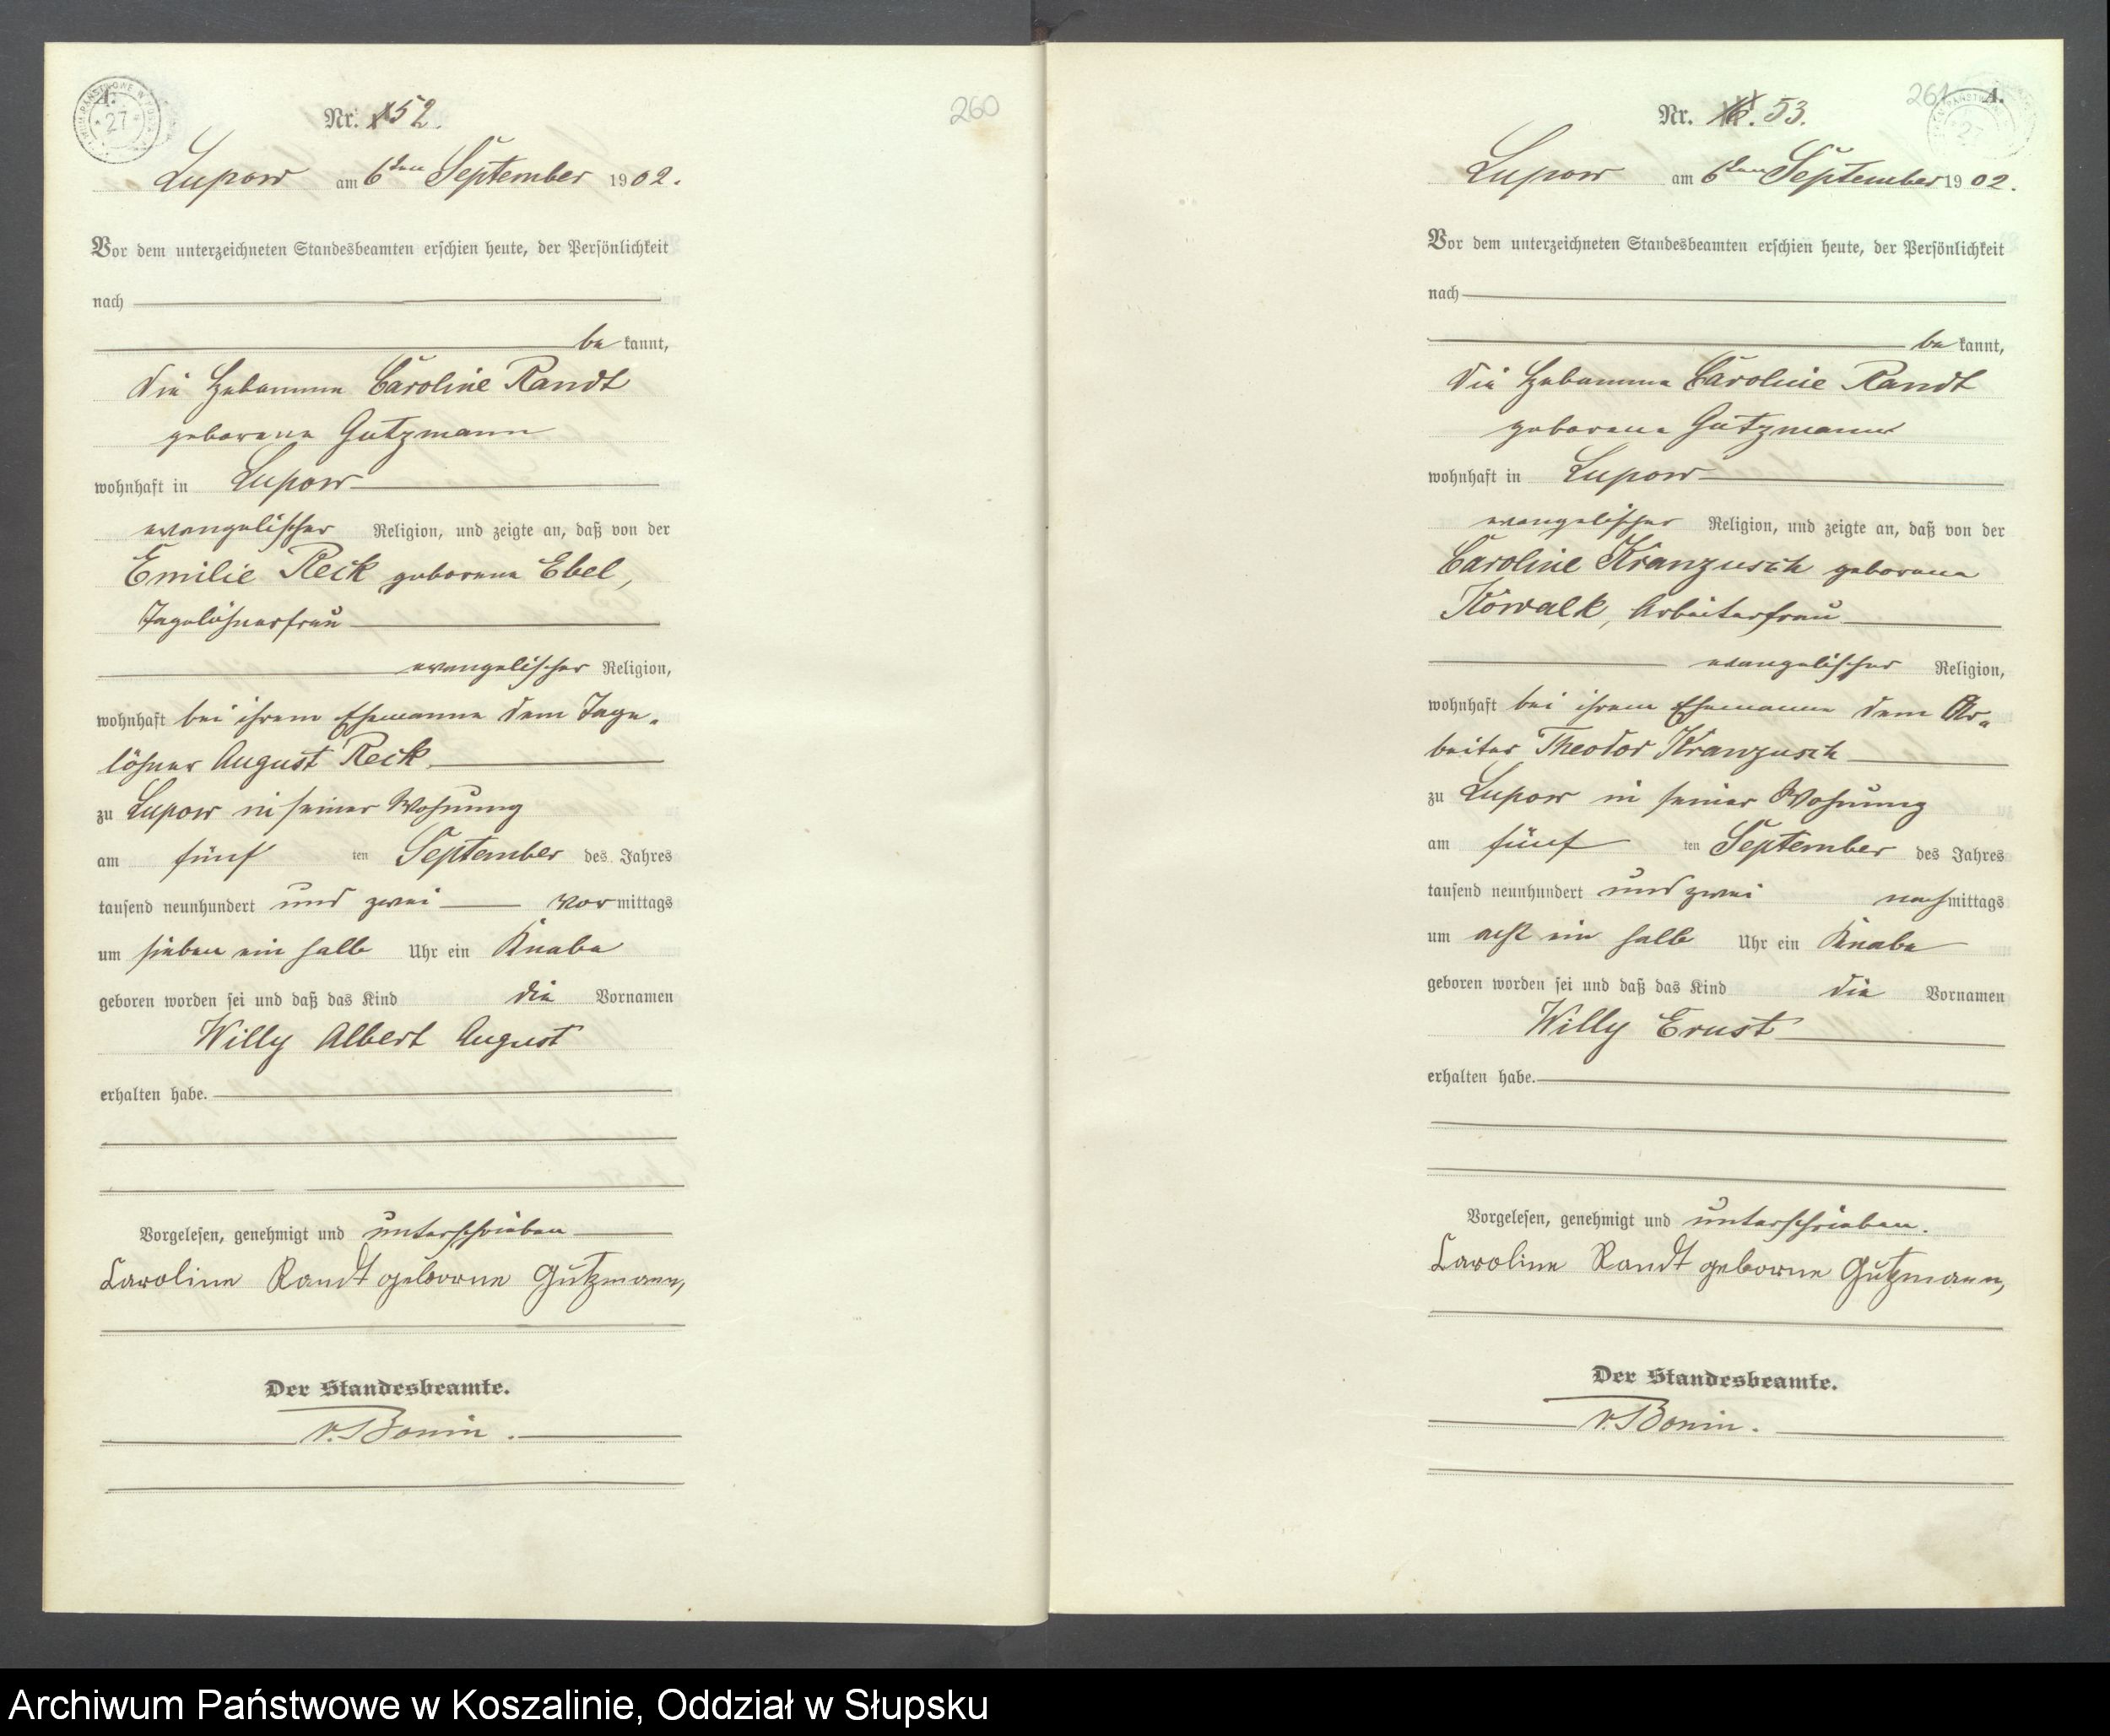 A.
27
Nr. 52.
260
Lupow am 6ten September 1902.
Vor dem unterzeichneten Standesbeamten erschien heute, der Persönlichkeit
nach
be kannt,
die Hebamme Caroline Randt
geborene Gutzmann
wohnhaft in Lupow
evangelischer Religion, und zeigte an, daß von der
Emilie Reck geborene Ebel,
Tagelöhnerfrau
evangelischer Religion,
wohnhaft bei ihrem Ehemanne dem Tage-
löhner August Reck
zu Lupow in seiner Wohnung
am fünf ten September des Jahres
tausend neunhundert und zwei Vormittags
um sieben ein halb Uhr ein Knabe
geboren worden sei und daß das Kind die Vornamen
Willy Albert August
erhalten habe.
Vorgelesen, genehmigt und unterschrieben
Caroline Randt geborne Gutzmann,
Der Standesbeamte.
v. Bonin.
261 A.
27
Nr. 53.
Lupow am 6ten September 1902.
Vor dem unterzeichneten Standesbeamten erschien heute, der Persönlichkeit
nach
be kannt,
die Hebamme Caroline Randt
geborene Gutzmann
wohnhaft in Lupow
evangelischer Religion, und zeigte an, daß von der
Caroline Kranzusch geborene
Kowalk, Arbeiterfrau
evangelischer Religion,
wohnhaft bei ihrem Ehemanne dem Ar-
beiter Theodor Kranzusch
zu Lupow in seiner Wohnung
am fünf ten September des Jahres
tausend neunhundert und zwei nachmittags
um acht ein halb Uhr ein Knabe
geboren worden sei und daß das Kind die Vornamen
Willy Ernst
erhalten habe.
Vorgelesen, genehmigt und unterschrieben.
Caroline Randt geborne Gutzmann,
Der Standesbeamte.
v. Bonin.
Archiwum Państwowe w Koszalinie, Oddział w Słupsku